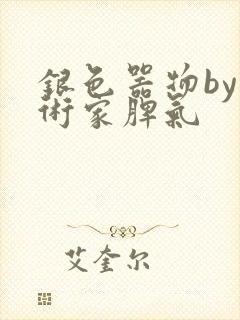 銀色器物by
術家脾氣
艾奎尔